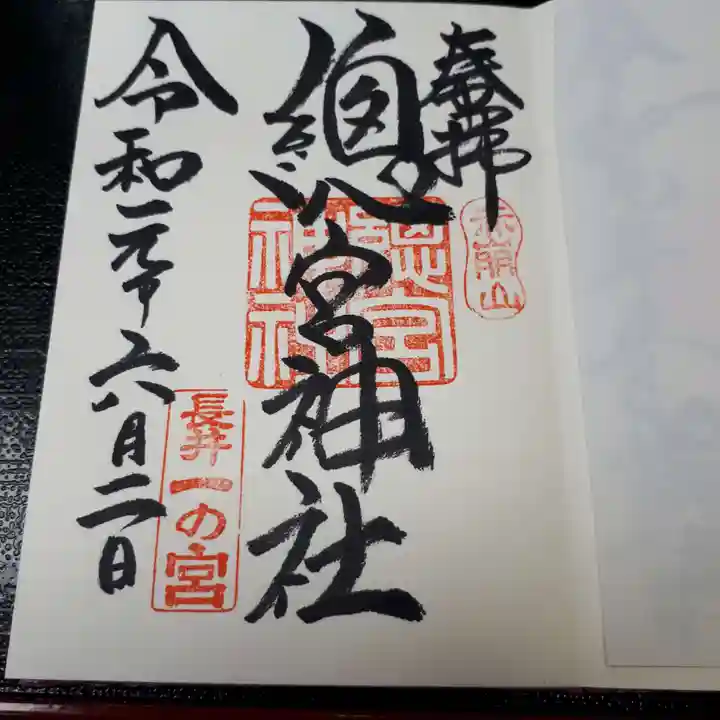 奉拝
赤崩山
總宮神社
總宮
神社
令和元年六月二日
長井一の宮